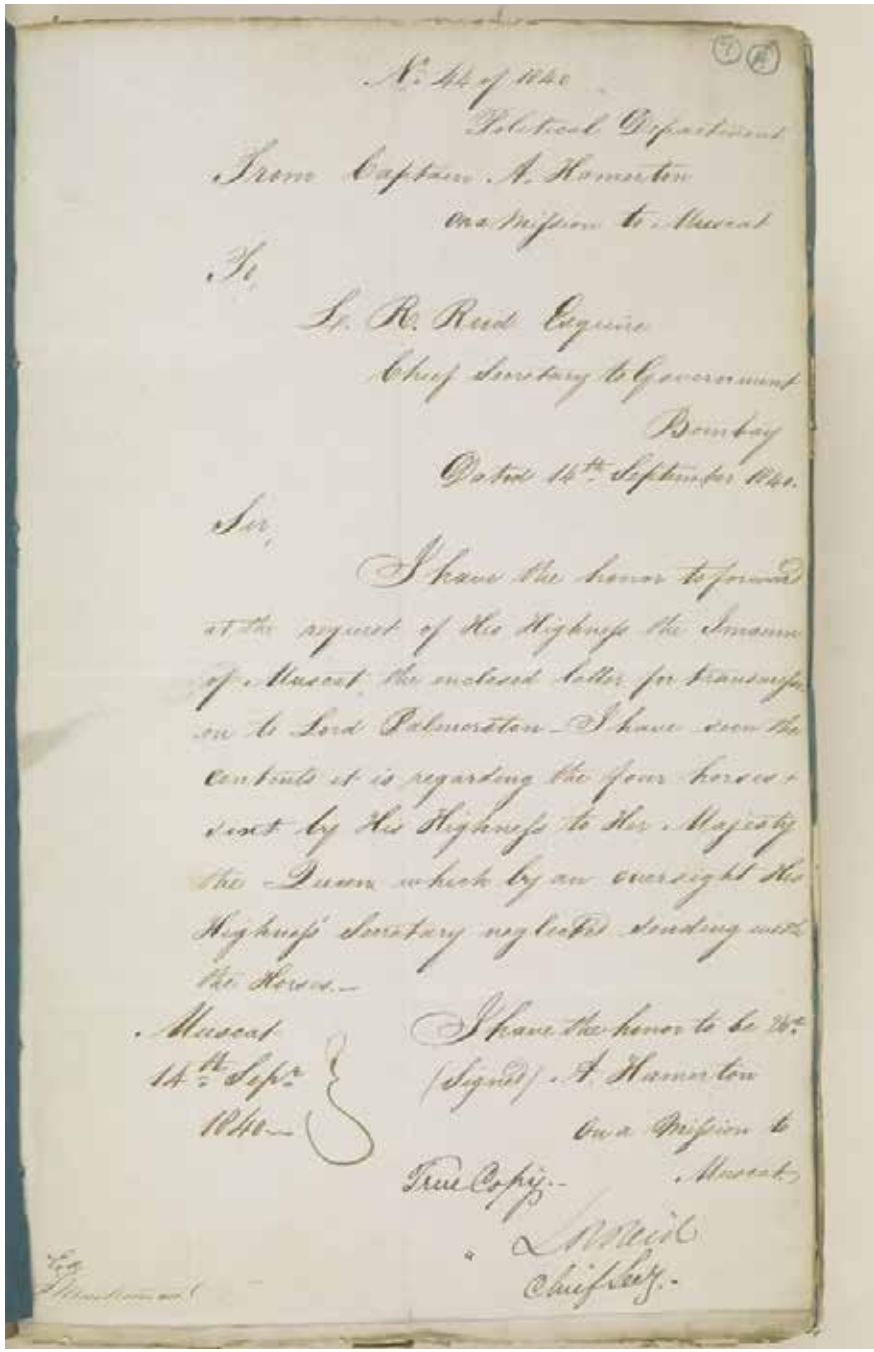 7 A
Nº 44 of 1840
Political Department
From Captain A. Hamerton
on a Mission to Muscat
To,
L. R. Reid Esquire
Chief Secretary to Government
Bombay
Dated 14th September 1840.
Sir,
I have the honor to forward
at the request of His Highness the Imaum
of Muscat, the enclosed letter for transmissi
on to Lord Palmerston – I have seen the
contents it is regarding the four horses
sent by His Highness to Her Majesty
the Queen which by an oversight His
Highness' Secretary neglected sending with
the Horses. –
Muscat
14th Sepr
1840 –
I have the honor to be &ca
(Signed) A. Hamerton
On a Mission to
Muscat
True Copy. –
L R Reid
Chief Secy. –